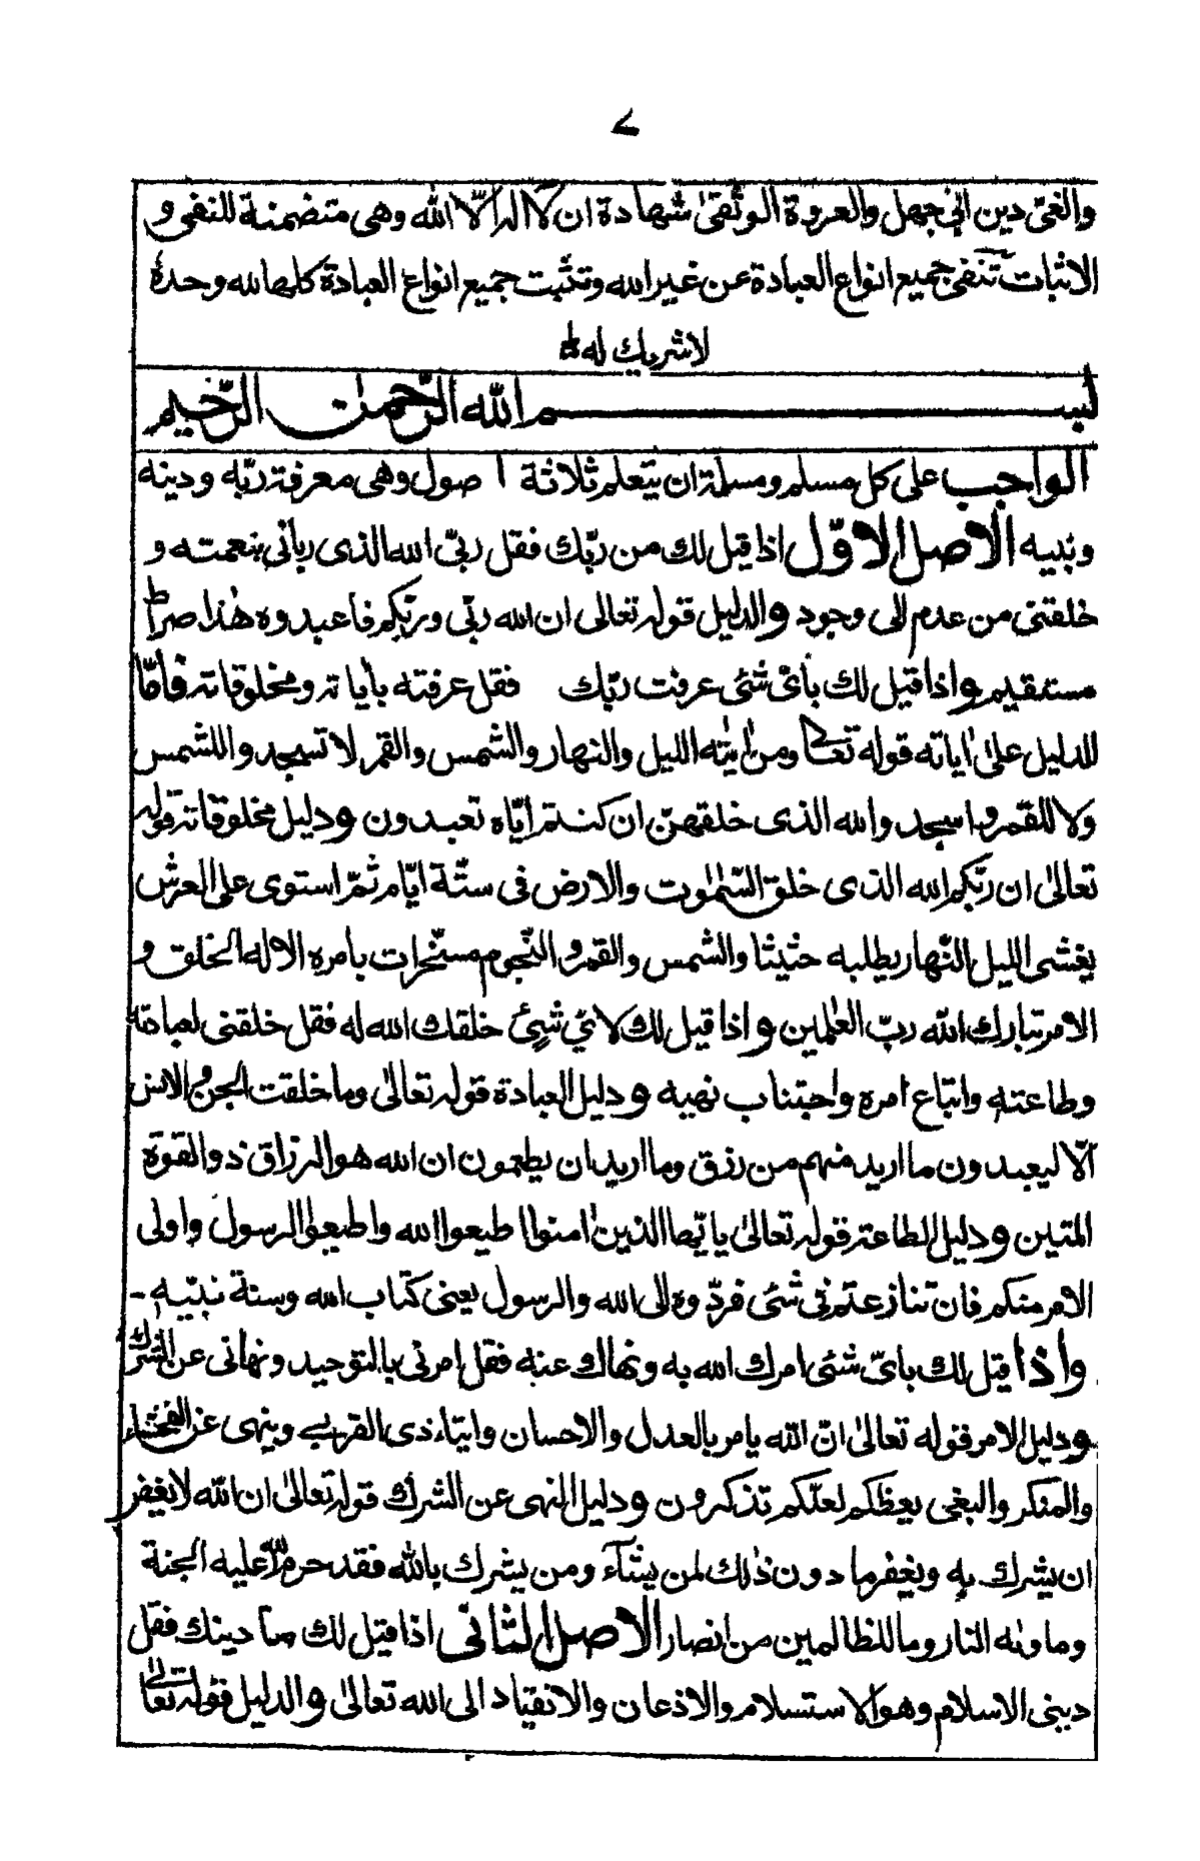 ٧
والغىّ دين ابى جهل والعروة الوثقىٰ شهادة ان لا اله الّا الله وهى متضمنة للنفى و
الاثبات تنفى جميع انواع العبادة عن غير الله وتثبت جميع انواع العبادة كلها لله وحدهٗ
لا شريك له
بسم الله الرّحمٰن الرّحيم
الواجب على كل مسلم ومسلمة ان يتعلم ثلاثة اصول وهى معرفة ربّه ودينه
ونبيه الاصل الاوّل اذا قيل لك من ربّك فقل ربّى الله الذى ربانى بنعمته و
خلقنى من عدم الى وجود والدليل قوله تعالى ان الله ربّى وربّكم فاعبدوه هٰذا صراط
مستقيم واذا قيل لك بأىّ شئى عرفت ربّك فقل عرفته بأياته ومخلوقاته فأمّا
الدليل علىٰ اٰياته قوله تعالى ومن اٰيٰته الليل والنهار والشمس والقمر لا تسجدوا للشمس
ولا للقمر واسجدوا لله الذى خلقهنّ ان كنتم ايّاه تعبدون ودليل مخلوقاته قوله
تعالىٰ ان ربّكم الله الذى خلق السّمٰوٰت والارض فى ستّة ايّام ثمّ استوى على العرش
يغشى الليل النّهار يطلبه حثيثا والشمس والقمر والنّجوم مسخّرات بأمره الا له الخلق و
الامر تبارك الله ربّ العٰلمين واذا قيل لك لاىّ شىئ خلقك الله له فقل خلقنى لعبادته
وطاعته واتباع امره واجتناب نهيه ودليل العبادة قوله تعالىٰ وما خلقت الجن والانس
الّا ليعبدون ما اريد منهم من رزق وما اريد ان يطعمون ان الله هو الرزاق ذو القوة
المتين ودليل الطاعة قوله تعالىٰ يا ايّها الذين اٰمنوا اطيعوا الله واطيعوا الرسول واولى
الامر منكم فان تنازعتم فى شئى فردّوه الى الله والرسول يعنى كتاب الله وسنة نبيّه -
واذا قيل لك باىّ شئى امرك الله به ونهاك عنه فقل امرنى بالتوحيد ونهانى عن الشرك
ودليل الامر قوله تعالىٰ انّ الله يامر بالعدل والاحسان وايتاء ذى القربى وينهى عن الفحشاء
والمنكر والبغى يعظكم لعلّكم تذكرون ودليل النهى عن الشرك قوله تعالىٰ ان الله لا يغفر
ان يشرك به ويغفر ما دون ذٰلك لمن يشآء ومن يشرك بالله فقد حرم الله عليه الجنة
وماوٰىه النار وما للظالمين من انصار الاصل الثانى اذا قيل لك ما دينك فقل
دينى الاسلام وهو الاستسلام والاذعان والانقياد الى الله تعالىٰ والدليل قوله تعالىٰ